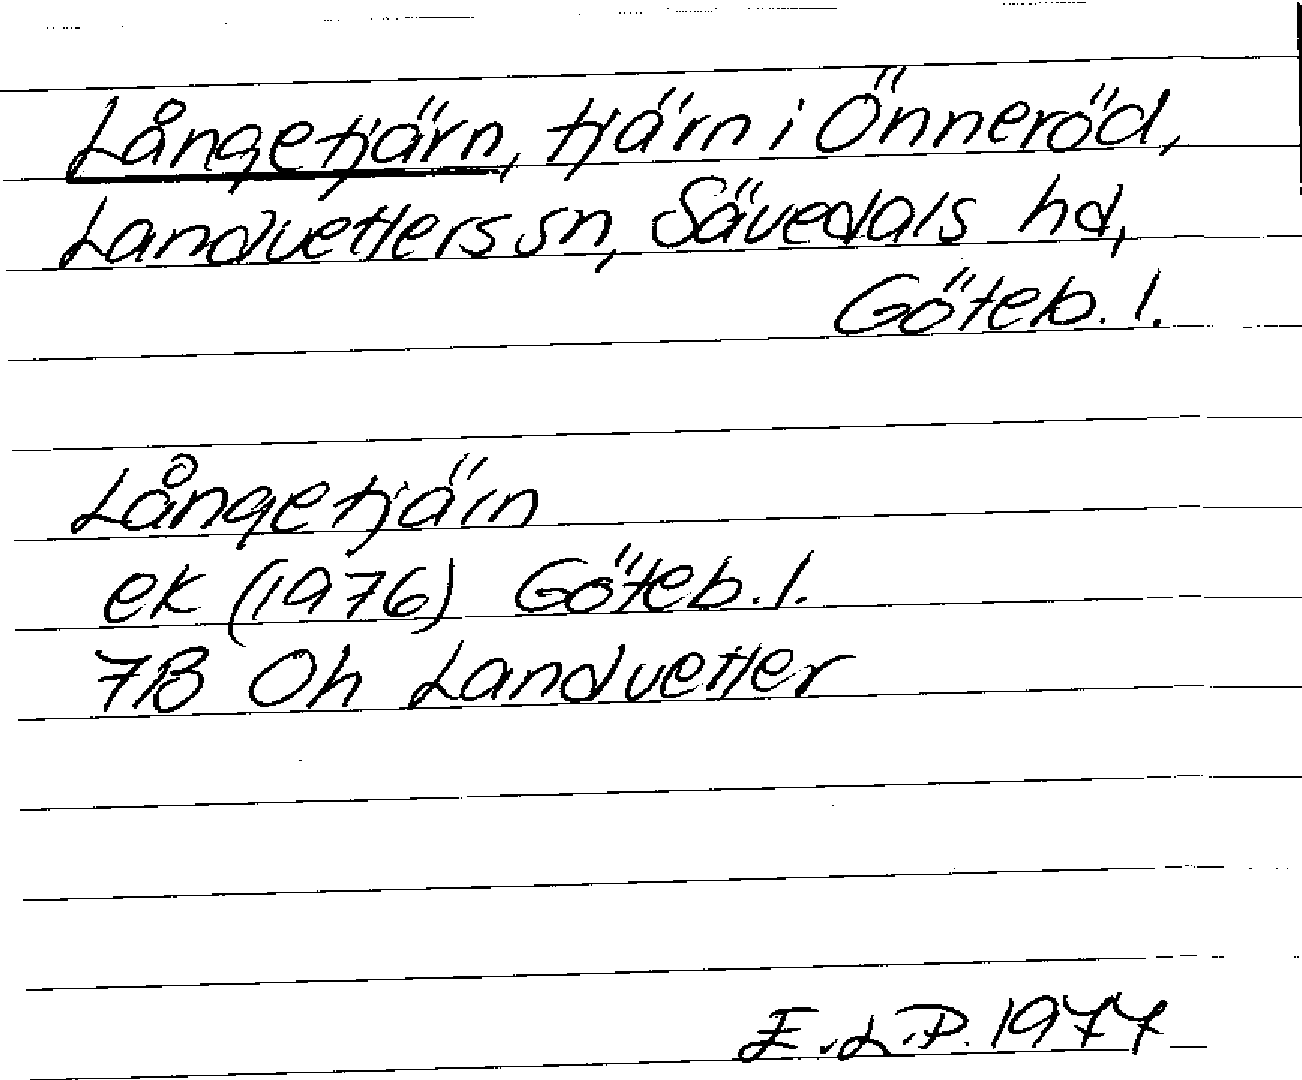 Långetjärn, tjärn i Önneröd,
Landvetters sn, Sävedals hd,
Göteb. l.
Långetjärn
ek (1976) Göteb. l.
7B 0h Landvetter
E.L.P. 1977